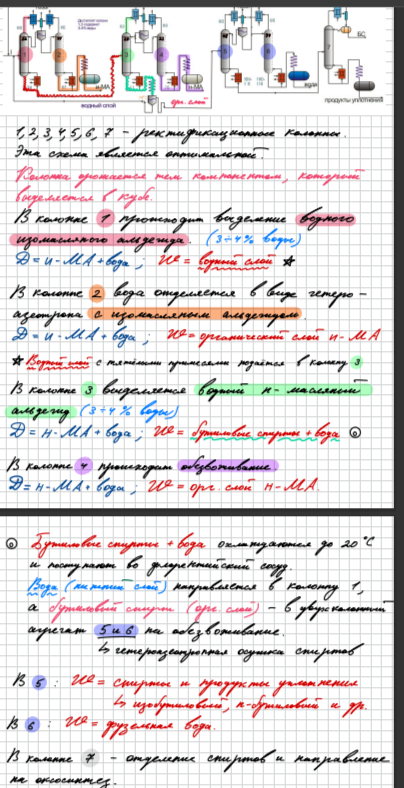 1
2
3
4
5
6
7
и-МА
н-МА
вода
БС
продукты уплотнения
водный слой
орг. слой
1,2,3,4,5,6,7 – ректификационные колонны.
Эта схема является оптимальной.
Колонка орошается тем компонентом, который
выделяется в кубе.
В колонне 1 происходит выделение водного
изомасляного альдегида. (3÷4% воды)
D = и-МА + вода ; W = водный слой ☆
В колонне 2 вода отделяется в виде гетеро-
азеотропа с изомасляным альдегидом.
D = и-МА + вода ; W = органический слой и-МА
☆ Водный слой с тяжёлыми примесями подаётся в колонну 3
В колонне 3 выделяется водный н-масляный
альдегид (3÷4% воды)
D = н-МА + вода ; W = бутиловые спирты + вода
В колонне 4 происходит обезвоживание
D = н-МА + вода ; W = орг. слой н-МА.
Бутиловые спирты + вода охлаждаются до 20 °С
и поступают во флорентийский сосуд.
Вода (нижний слой) направляется в колонну 1,
а бутиловый спирт (орг. слой) – в двухколонный
агрегат 5 и 6 на обезвоживание.
↳ гетероазеотропная осушка спиртов
В 5 : W = спирты и продукты уплотнения
↳ изобутиловый, н-бутиловый и др.
В 6 : W = фузельная вода.
В колонне 7 – отделение спиртов и направление
на оксосинтез.